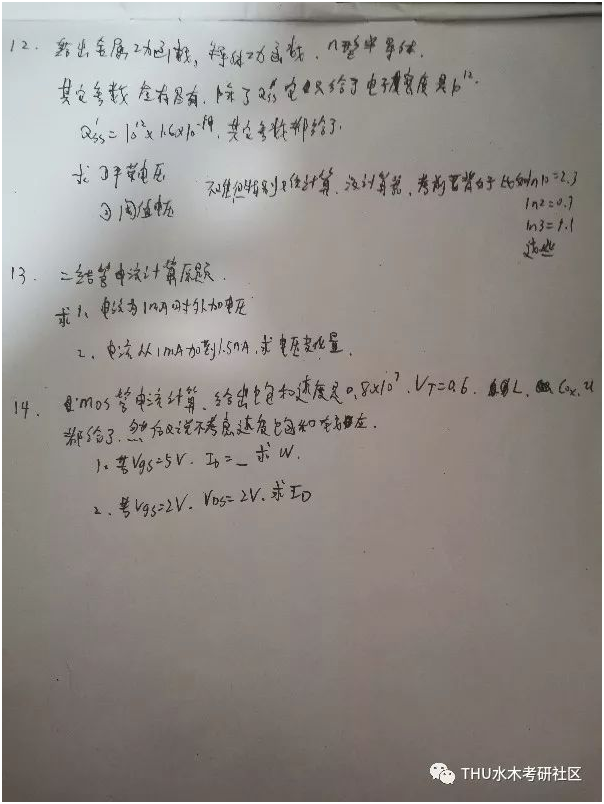 12. 给出金属功函数, 半导体功函数, n型半导体.
其它参数全有只有, 除了Qss它只给了电子密度是10¹².
Qss = 10¹²×1.6×10⁻¹⁹, 其它参数都给了.
求 ①平带电压
②阈值电压
不难但特别难计算, 没计算器, 考前要背 ln10=2.3
ln2=0.7
ln3=1.1
这些
13. 二结管电流计算原题.
求1. 电流为1mA时外加电压
2. 电流从1mA加到1.5mA, 求电压变化量.
14. MOS管电流计算, 给出饱和速度是0.8×10⁷. VT=0.6. L. Cox, u
都给了, 然后又说不考虑速度饱和效应.
1. 若Vgs=5V. ID=_ 求W.
2. 若Vgs=2V. VDS=2V. 求ID
THU水木考研社区